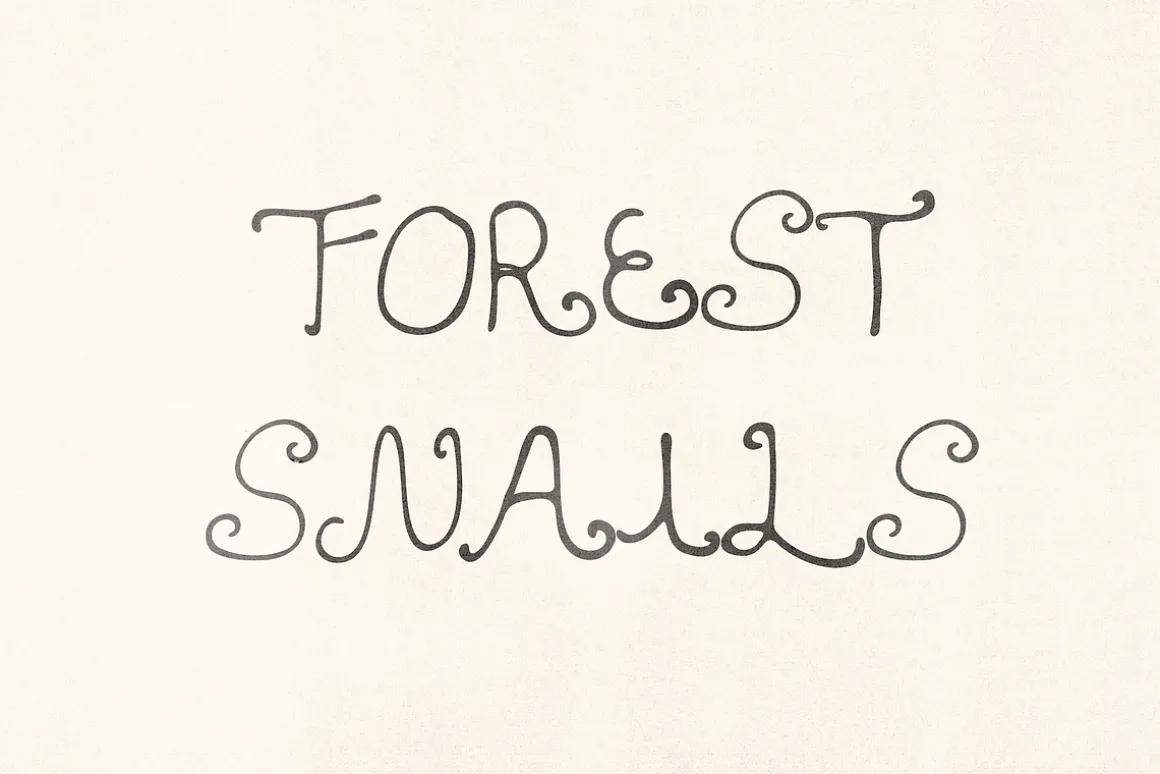 FOREST
SNAILS